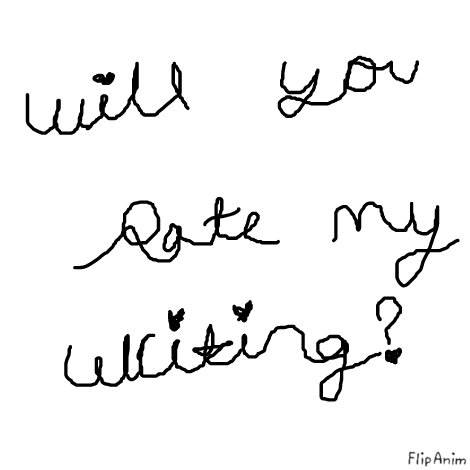 will you
Rate my
writing?
FlipAnim